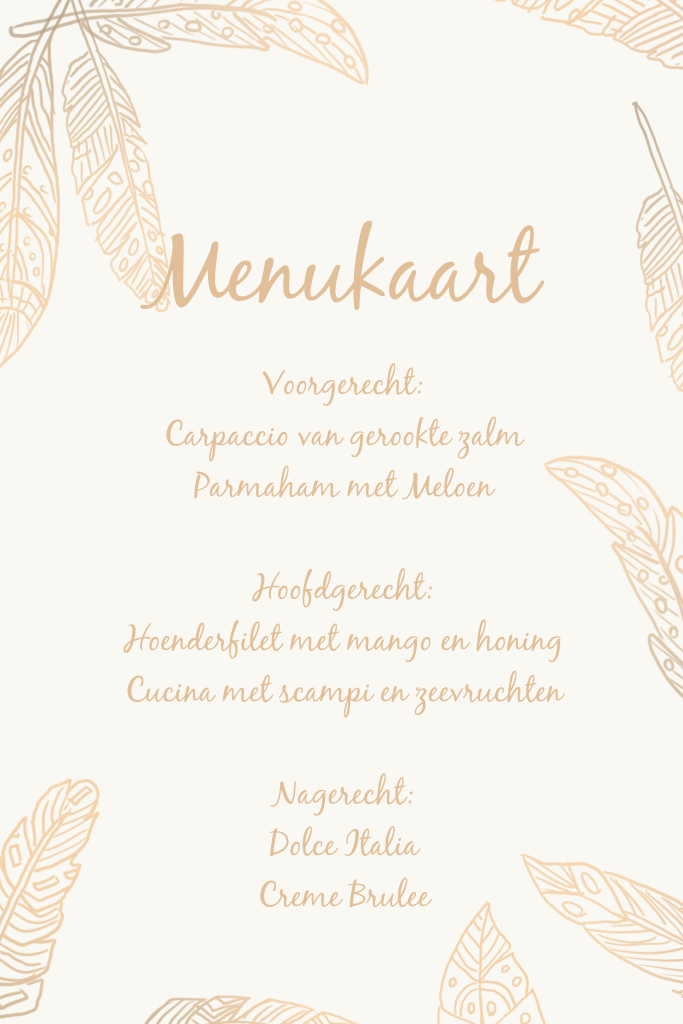 Menukaart
Voorgerecht:
Carpaccio van gerookte zalm
Parmaham met Meloen
Hoofdgerecht:
Hoenderfilet met mango en honing
Cucina met scampi en zeevruchten
Nagerecht:
Dolce Italia
Creme Brulee